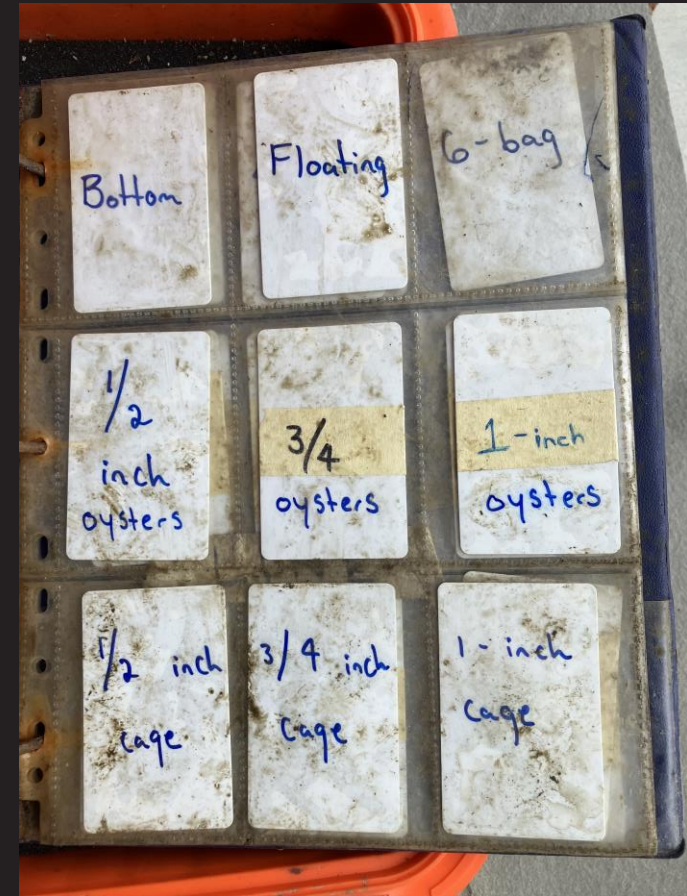 Bottom
Floating
6-bag
1/2
inch
oysters
3/4
oysters
1-inch
oysters
1/2 inch
cage
3/4 inch
cage
1-inch
cage